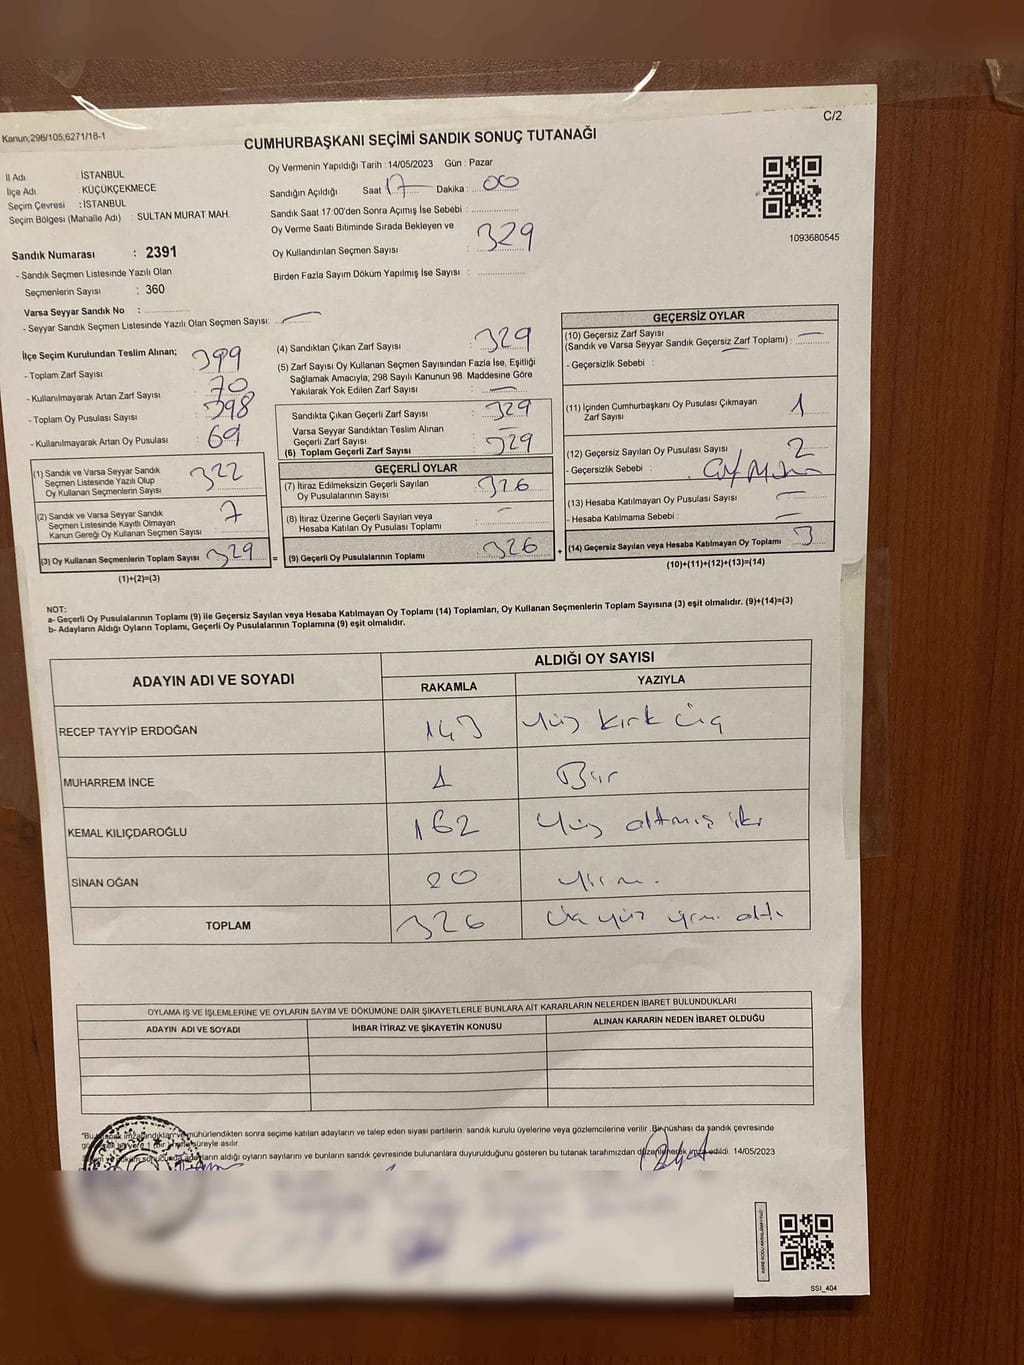 Kanun;298/105,6271/18-1
C/2
CUMHURBAŞKANI SEÇİMİ SANDIK SONUÇ TUTANAĞI
İl Adı : İSTANBUL
İlçe Adı : KÜÇÜKÇEKMECE
Seçim Çevresi : İSTANBUL
Seçim Bölgesi (Mahalle Adı) : SULTAN MURAT MAH.
Sandık Numarası : 2391
- Sandık Seçmen Listesinde Yazılı Olan
Seçmenlerin Sayısı : 360
Varsa Seyyar Sandık No :
- Seyyar Sandık Seçmen Listesinde Yazılı Olan Seçmen Sayısı:
Oy Vermenin Yapıldığı Tarih : 14/05/2023 Gün : Pazar
Sandığın Açıldığı Saat 17 Dakika : 00
Sandık Saat 17:00'den Sonra Açımış İse Sebebi :
Oy Verme Saati Bitiminde Sırada Bekleyen ve
Oy Kullandırılan Seçmen Sayısı : 329
Birden Fazla Sayım Döküm Yapılmış İse Sayısı :
1093680545
İlçe Seçim Kurulundan Teslim Alınan;
- Toplam Zarf Sayısı : 399
- Kullanılmayarak Artan Zarf Sayısı : 70
- Toplam Oy Pusulası Sayısı : 398
- Kullanılmayarak Artan Oy Pusulası : 69
(1) Sandık ve Varsa Seyyar Sandık
Seçmen Listesinde Yazılı Olup
Oy Kullanan Seçmenlerin Sayısı : 322
(2) Sandık ve Varsa Seyyar Sandık
Seçmen Listesinde Kayıtlı Olmayan
Kanun Gereği Oy Kullanan Seçmen Sayısı : 7
(3) Oy Kullanan Seçmenlerin Toplam Sayısı : 329
(1)+(2)=(3)
(4) Sandıktan Çıkan Zarf Sayısı : 329
(5) Zarf Sayısı Oy Kullanan Seçmen Sayısından Fazla İse, Eşitliği
Sağlamak Amacıyla, 298 Sayılı Kanunun 98. Maddesine Göre
Yakılarak Yok Edilen Zarf Sayısı : —
Sandıkta Çıkan Geçerli Zarf Sayısı : 329
Varsa Seyyar Sandıktan Teslim Alınan
Geçerli Zarf Sayısı : —
(6) Toplam Geçerli Zarf Sayısı : 329
GEÇERLİ OYLAR
(7) İtiraz Edilmeksizin Geçerli Sayılan
Oy Pusulalarının Sayısı : 326
(8) İtiraz Üzerine Geçerli Sayılan veya
Hesaba Katılan Oy Pusulası Toplamı : —
= (9) Geçerli Oy Pusulalarının Toplamı : 326
GEÇERSİZ OYLAR
(10) Geçersiz Zarf Sayısı
(Sandık ve Varsa Seyyar Sandık Geçersiz Zarf Toplamı) : —
- Geçersizlik Sebebi :
(11) İçinden Cumhurbaşkanı Oy Pusulası Çıkmayan
Zarf Sayısı : 1
(12) Geçersiz Sayılan Oy Pusulası Sayısı : 2
- Geçersizlik Sebebi :
(13) Hesaba Katılmayan Oy Pusulası Sayısı : —
- Hesaba Katılmama Sebebi : —
+ (14) Geçersiz Sayılan veya Hesaba Katılmayan Oy Toplamı : 3
(10)+(11)+(12)+(13)=(14)
NOT:
a- Geçerli Oy Pusulalarının Toplamı (9) ile Geçersiz Sayılan veya Hesaba Katılmayan Oy Toplamı (14) Toplamları, Oy Kullanan Seçmenlerin Toplam Sayısına (3) eşit olmalıdır. (9)+(14)=(3)
b- Adayların Aldığı Oyların Toplamı, Geçerli Oy Pusulalarının Toplamına (9) eşit olmalıdır.
ADAYIN ADI VE SOYADI ALDIĞI OY SAYISI
RAKAMLA YAZIYLA
RECEP TAYYİP ERDOĞAN 143 Yüz kırk üç
MUHARREM İNCE 1 Bir
KEMAL KILIÇDAROĞLU 162 Yüz altmış iki
SİNAN OĞAN 20 Yirmi
TOPLAM 326 Üç yüz yirmi altı
OYLAMA İŞ VE İŞLEMLERİNE VE OYLARIN SAYIM VE DÖKÜMÜNE DAİR ŞİKAYETLERLE BUNLARA AİT KARARLARIN NELERDEN İBARET BULUNDUKLARI
ADAYIN ADI VE SOYADI İHBAR İTİRAZ VE ŞİKAYETİN KONUSU ALINAN KARARIN NEDEN İBARET OLDUĞU
mühürlendikten sonra seçime katılan adayların ve talep eden siyasi partilerin sandık kurulu üyelerine veya gözlemcilerine verilir. Bir nüshası da sandık çevresinde
süreyle asılır.
aldığı oyların sayılarını ve bunların sandık çevresinde bulunanlara duyurulduğunu gösteren bu tutanak tarafımızdan düzenlenerek imza edildi. 14/05/2023
SSİ_404